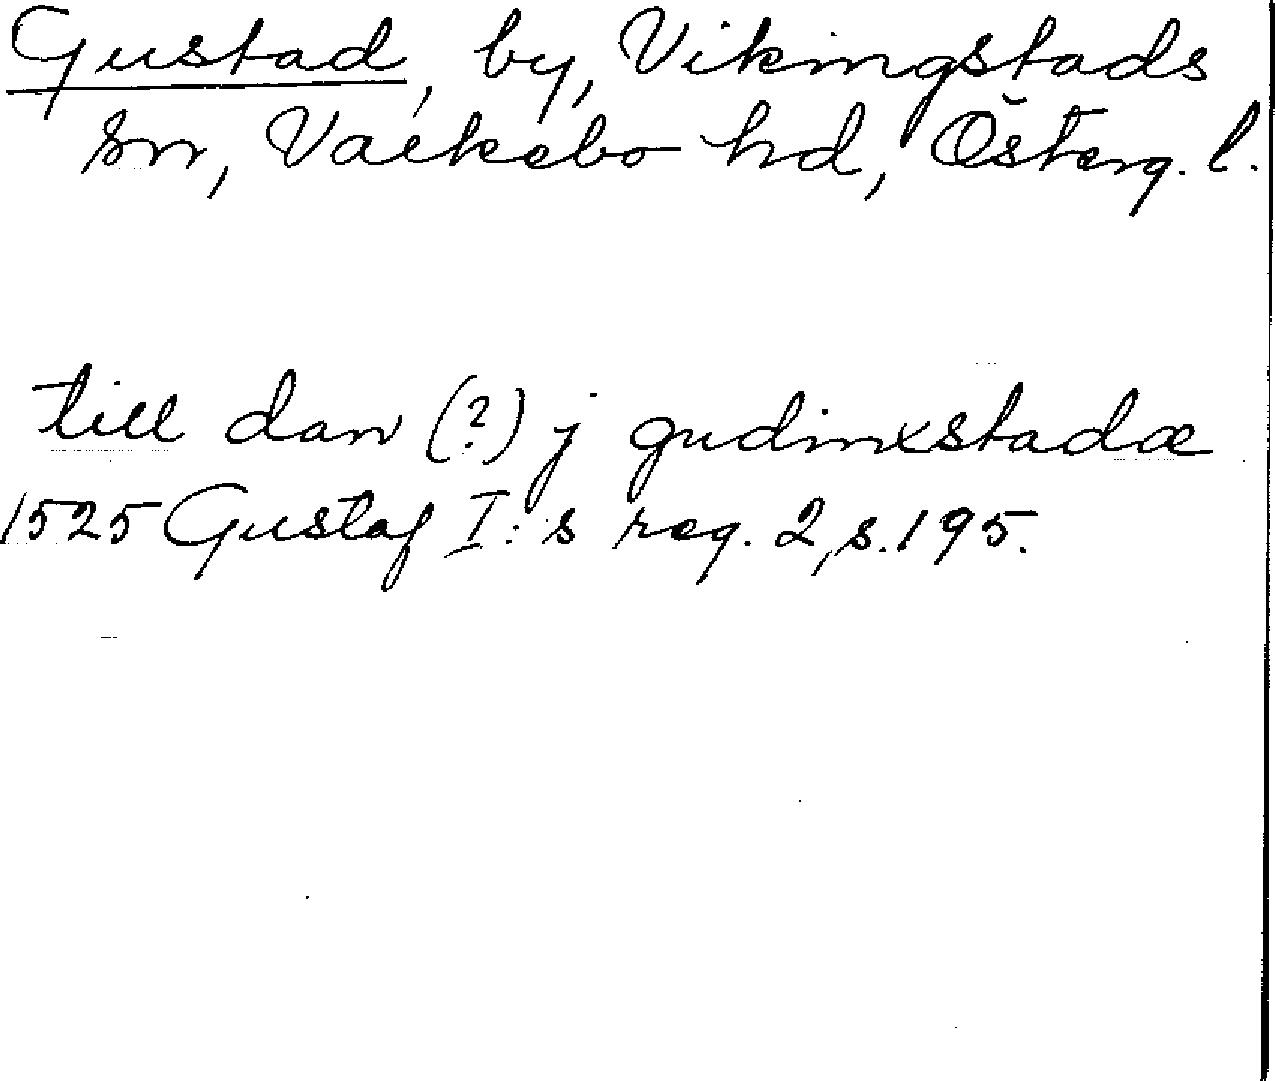 Gustad, by, Vikingstads
sn, Valkebo hd, Österg. l.
till dan (?) j gudinxstadæ
1525 Gustaf I:s reg. 2, s. 195.